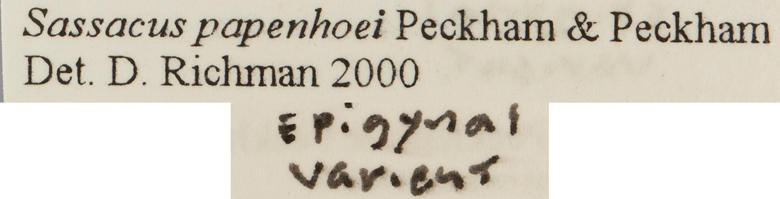 Sassacus papenhoei Peckham & Peckham
Det. D. Richman 2000
Epigynal
varient